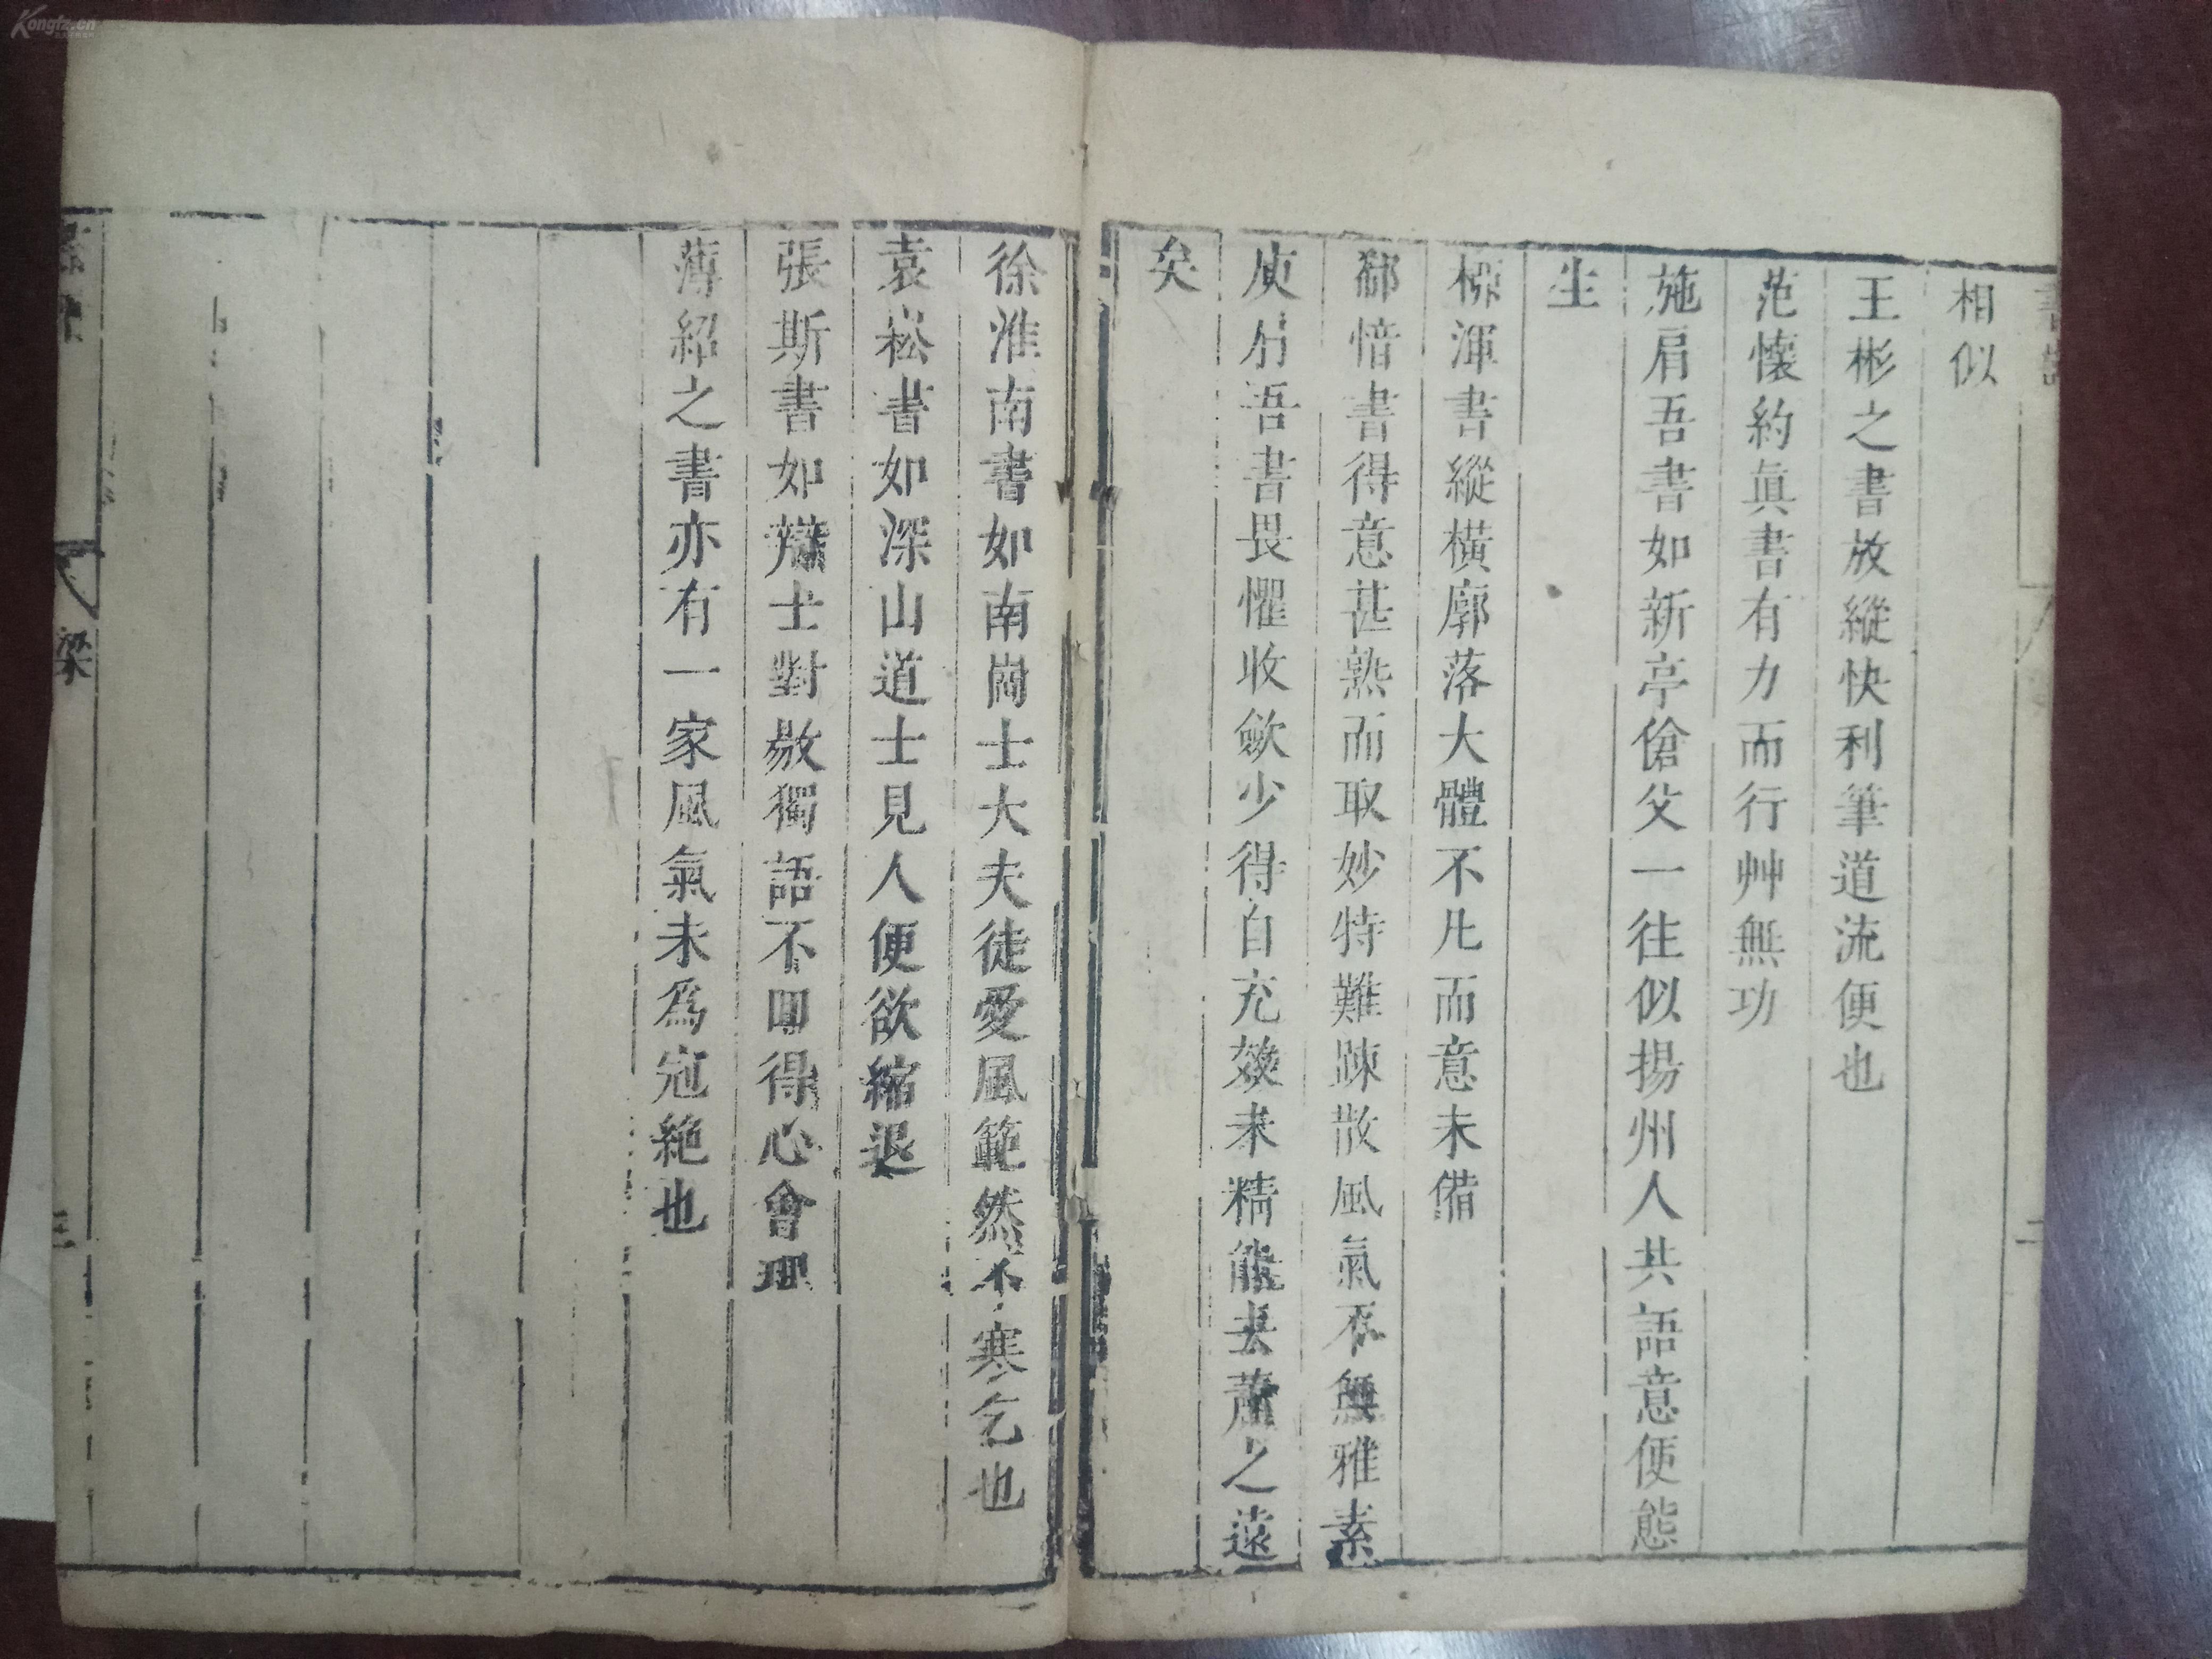 相似
王彬之書放縱快利筆道流便也
范懷約眞書有力而行艸無功
施肩吾書如新亭傖父一往似揚州人共語意便態
生
柳渾書縱橫廓落大體不凡而意未備
郗愔書得意甚熟而取妙特難踈散風氣不無雅素
庾肩吾書畏懼收歛少得自充𡙇未精能去蕭之遠
矣
徐淮南書如南崗士大夫徒愛風範然不寒乞也
袁崧書如深山道士見人便欲縮退
張斯書如辯士對敭獨語不囬得心會理
薄紹之書亦有一家風氣未爲㓂絶也
梁
三
Kongfz.cn